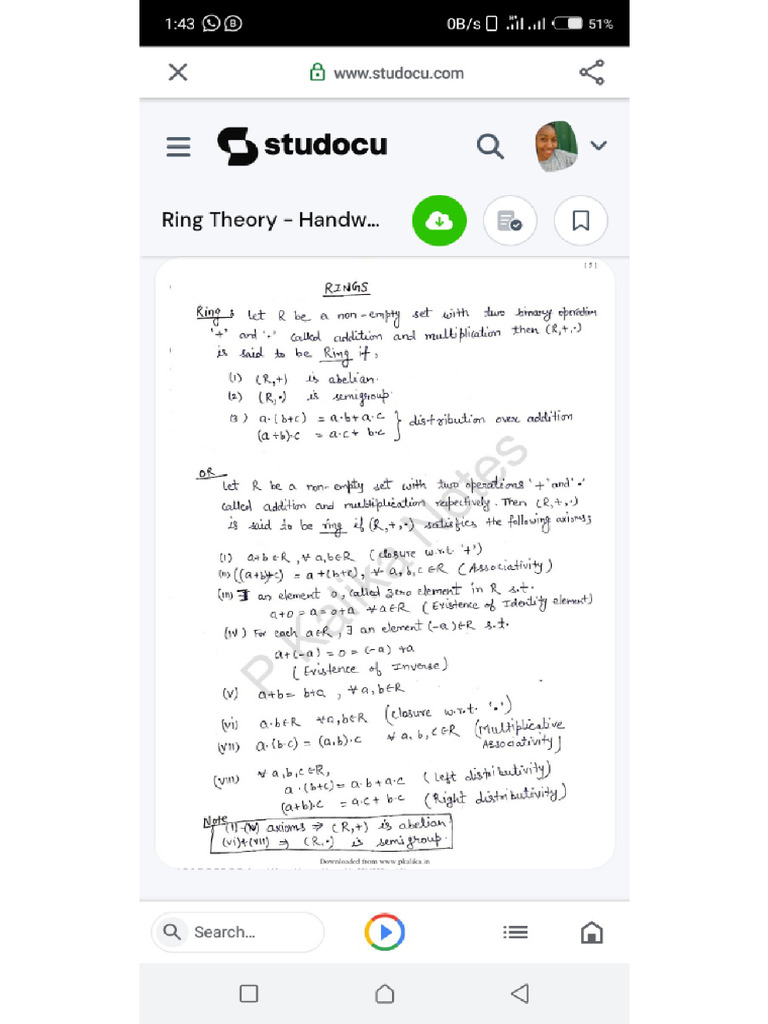 1:43 B 0B/s 51%
www.studocu.com
studocu
Ring Theory - Handw...
RINGS
Ring : Let R be a non-empty set with two binary operation
'+' and '.' called addition and multiplication then (R,+,.)
is said to be Ring if,
(1) (R,+) is abelian.
(2) (R,.) is semigroup.
(3) a.(b+c) = a.b+a.c } distribution over addition
(a+b).c = a.c+ b.c
OR
Let R be a non-empty set with two operations '+' and '.'
called addition and multiplication repectively. Then (R,+,.)
is said to be ring if (R,+,.) satisfies the following axioms;
(i) a+b∈R, ∀ a,b∈R (closure w.r.t '+')
(ii) ((a+b)+c) = a+(b+c), ∀ a,b,c ∈R (Associativity)
(iii) ∃ an element 0, called zero element in R s.t.
a+0 = a = 0+a ∀ a∈R (Existence of Identity element)
(iv) For each a∈R, ∃ an element (-a)∈R s.t.
a+(-a) = 0 = (-a) +a
(Existence of Inverse)
(v) a+b = b+a , ∀ a,b∈R
(vi) a.b∈R ∀ a,b∈R (closure w.r.t. '.')
(vii) a.(b.c) = (a.b).c ∀ a,b,c∈R (Multiplicative
Associativity)
(viii) ∀ a,b,c∈R,
a.(b+c) = a.b+a.c (Left distributivity)
(a+b).c = a.c+ b.c (Right distributivity)
Note
(i)-(v) axioms ⇒ (R,+) is abelian
(vi)+(vii) ⇒ (R,.) is semigroup.
P Kalika Notes
Downloaded from www.pkalika.in
Search...